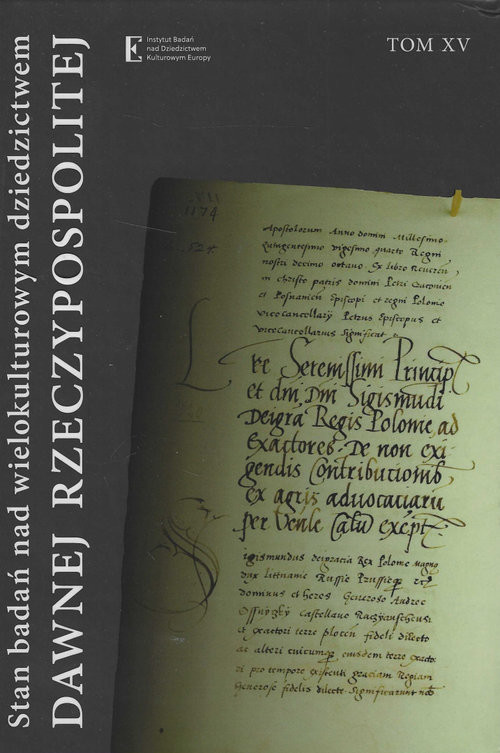 Stan badań nad wielokulturowym dziedzictwem
DAWNEJ RZECZYPOSPOLITEJ
Instytut Badań
nad Dziedzictwem
Kulturowym Europy
TOM XV
1174
524
Apostolorum Anno domini Millesimo
quingentesimo vigesimo quarto Regni
nostri decimo octavo. Ex libro Reveren
in christo patris domini Petri
et Posnanien Episcopi et regni Polonie
vicecancellarij Petrus Episcopus et
vicecancellarius significat
Lre Serenissimi Princip
et dm, Dm Sigismudi
Deigra Regis Polonie, ad
Exactores. De non exi
gendis Contributionib
ex agris advocaciaru
per venle
Sigismundus deigracia Rex Polonie magnu
dux littuanie Russie Prussieqz
dominus et heres Generoso Andree
castellano
et exactori terre plocen fideli dilecto
ac alteri cuicumqz eiusdem terre exacto
ri pro tempore existenti graciam Regiam
Generose fidelis dilecte. Significarunt nob